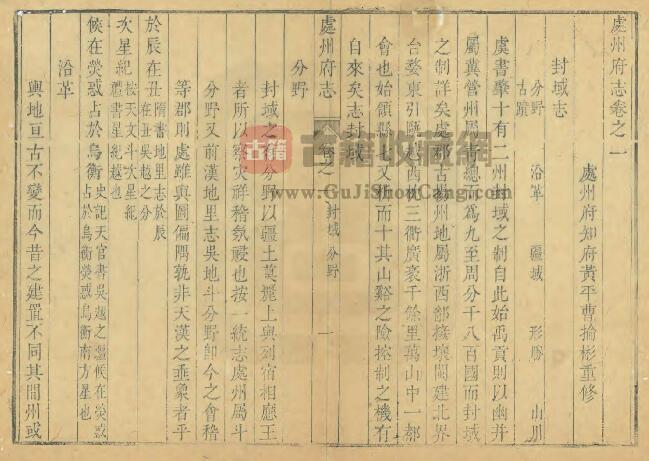 處州府志卷之一
處州府知府黃平曹掄彬重修
封域志
分野 沿革 疆域 形勝 山川
古蹟
虞書肇十有二州封域之制自此始禹貢則以幽并
屬冀營州屬青總而為九至周分千八百國而封域
之制詳矣處郡古揚州地屬浙西鄙接壤閩建北界
台婺東引甌越西枕三衢廣袤千餘里萬山中一都
會也始領縣七又析而十其山谿之險控制之機有
自來矣志封域
處州府志 卷之一 封域 分野 一
分野
封域之有分野以疆土奠麗上與列宿相應王
者所以察災祥稽氛祲也按一統志處州屬斗
分野又前漢地里志吳地斗分野卽今之會稽
等郡則處雖輿圖偏隅孰非天漢之垂象者乎
於辰在丑 隋書地里志於辰在丑吳越之分
次星紀 按天文斗次星紀禮書星紀越也
候在熒惑占於鳥衡 史記天官書吳越之疆候在熒惑占於鳥衡熒惑鳥衡南方星也
沿革
輿地亘古不變而今昔之建置不同其間州或
古籍收藏網
www.GuJiShouCang.com